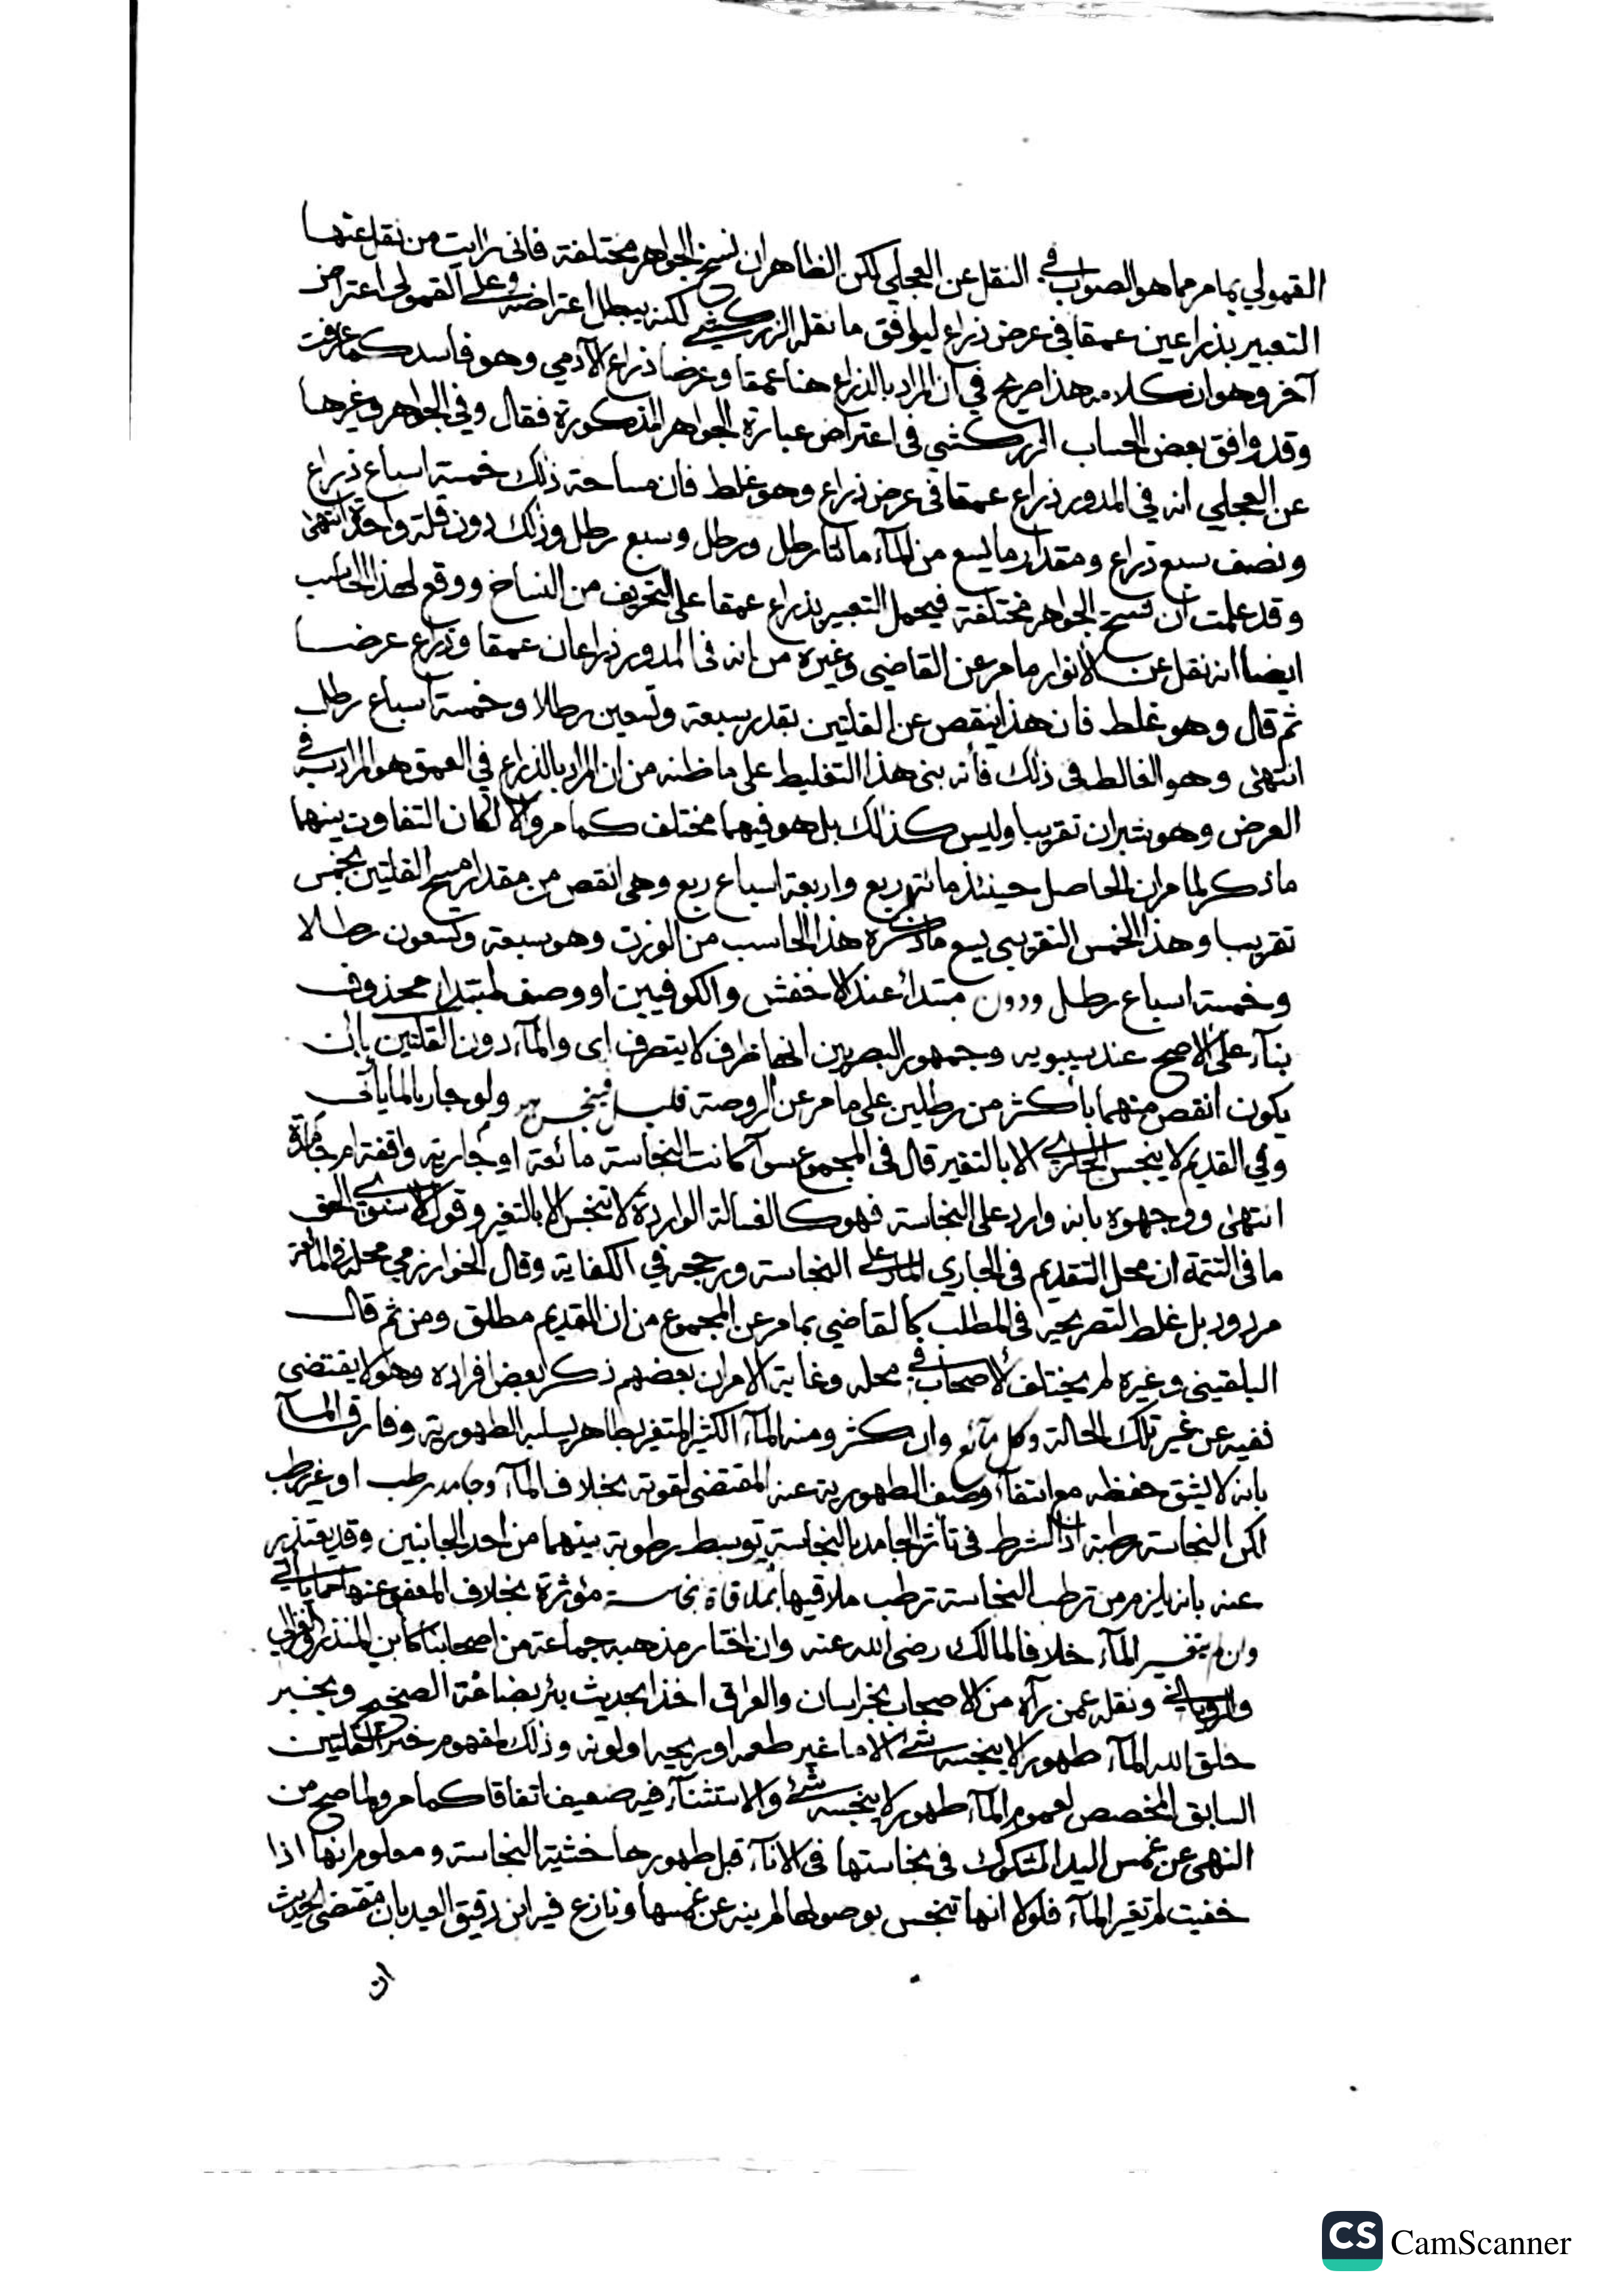 القمولي بما مر مما هو الصواب في النقل عن العجلي لكن الظاهر ان نسخ الجواهر مختلفة فاني رايت من نقل عنها
التعبير بذراعين عمقا في عرض ذراع ليوافق ما نقله الزركشي لكنه يبطل اعتراضه وعلى القمولي اعتراض
آخر وهو ان كلامه هذا صريح في ان المراد بالذراع هنا عمقا وعرضا ذراع الآدمي وهو فاسد كما عرفت
وقد وافق بعض الحساب الزركشي في اعتراض عبارة الجواهر المذكورة فقال وفي الجواهر وغيرها
عن العجلي انه في المدور ذراع عمقا في عرض ذراع وهو غلط فان مساحة ذلك خمسة اسباع ذراع
ونصف سبع ذراع ومقدار ما يسع من المآء مائتا رطل ورطل وسبع رطل وذلك دون قلة واحدة انتهى
وقد علمت ان نسخ الجواهر مختلفة فيحمل التعبير بذراع عمقا على التحريف من النساخ ووقع لهذا الحاسب
ايضا انه نقل عن الأنوار ما مر عن القاضي وغيره من انه في المدور ذراعان عمقا وذراع عرضا
ثم قال وهو غلط فان هذا ينقص عن القلتين بقدر سبعة وتسعين رطلا وخمسة اسباع رطل
انتهى وهو الغالط في ذلك فأنه بنى هذا التغليط على ما ظنه من ان المراد بالذراع في العمق هو المراد به في
العرض وهو شبران تقريبا وليس كذلك بل هو فيهما مختلف كما مر والا لكان التفاوت بينهما
ما ذكر لما مر ان الحاصل حينئذ مائة ربع واربعة اسباع ربع وهي انقص من مقدار مسح القلتين بخمس
تقريبا وهذا الخمس التقريبي يسع ما ذكره هذا الحاسب من الوزن وهو سبعة وتسعون رطلا
وخمسة اسباع رطل ودون مبتدأ عند الاخفش والكوفيين او وصف لمبتدا محذوف
بنآء على الأصح عند سيبويه وجمهور البصريين انها ظرف لا يتصرف اى والمآء دون القلتين بان
يكون انقص منهما بأكثر من رطلين على ما مر عن الروضة قليل فينجس ولو جاريا لما يأتي
وفي القديم لا ينجس الجاري الا بالتغير قال في المجموع سوآ كانت النجاسة مائعة او جارية واقفة ام جامدة
انتهى ووجهوه بانه وارد على النجاسة فهو كالغسالة الواردة لا تنجس الا بالتغير وقول الاسنوي الحق
ما في التتمة ان محل التقديم في الجاري المار على النجاسة ورجحه في الكفاية وقال الخوارزمي محله في المائعة
مردود بل غلط التصريحه في المطلب كالقاضي بما مر عن المجموع من ان القديم مطلق ومن ثم قال
البلقيني وغيره لم يختلف الأصحاب في محله وغاية الامر ان بعضهم ذكر بعض افراده وهو لا يقتضى
نفيه عن غير تلك الحالة وكل مآئع وان كثر ومنه المآء الكثير المتغير بطاهر يسلبه الطهورية وفارق المآ
بانه لا يشق حفظه مع انتفآء وصف الطهورية عنه المقتضى لقوته بخلاف المآء وجامد رطب او غير رطب
لكن النجاسة رطبة اذ الشرط في تأثر الجامد بالنجاسة توسط رطوبة بينهما من احد الجانبين وقد يعتذر
عنه بانه يلزم من ترطب النجاسة ترطب ملاقيها بملاقاة نجاسة مؤثرة بخلاف المعفو عنها كما ياتي
وان لم يتغير المآء خلافا لمالك رضى الله عنه وان اختار مذهبه جماعة من اصحابنا كابن المنذر والغزالي
والروياني ونقله عمن رآه من الاصحاب بخراسان والعراق اخذا بحديث بئر بضاعة الصحيح وبخبر
خلق الله المآء طهورا لا ينجسه شئ الا ما غير طعمه او ريحه او لونه وذلك لمفهوم خبر القلتين
السابق المخصص لعموم المآء طهور لا ينجسه شئ والاستثنآء فيه ضعيف اتفاقا كما مر ولما صح من
النهى عن غمس اليد المشكوك في نجاستها في الانآء قبل طهورها خشية النجاسة ومعلوم انها اذا
خفيت لم تغير المآء فلولا انها تنجس بوصولها لم ينه عن غمسها ونازع فيه ابن دقيق العيد بان مقتضى الحديث
ان
CS CamScanner